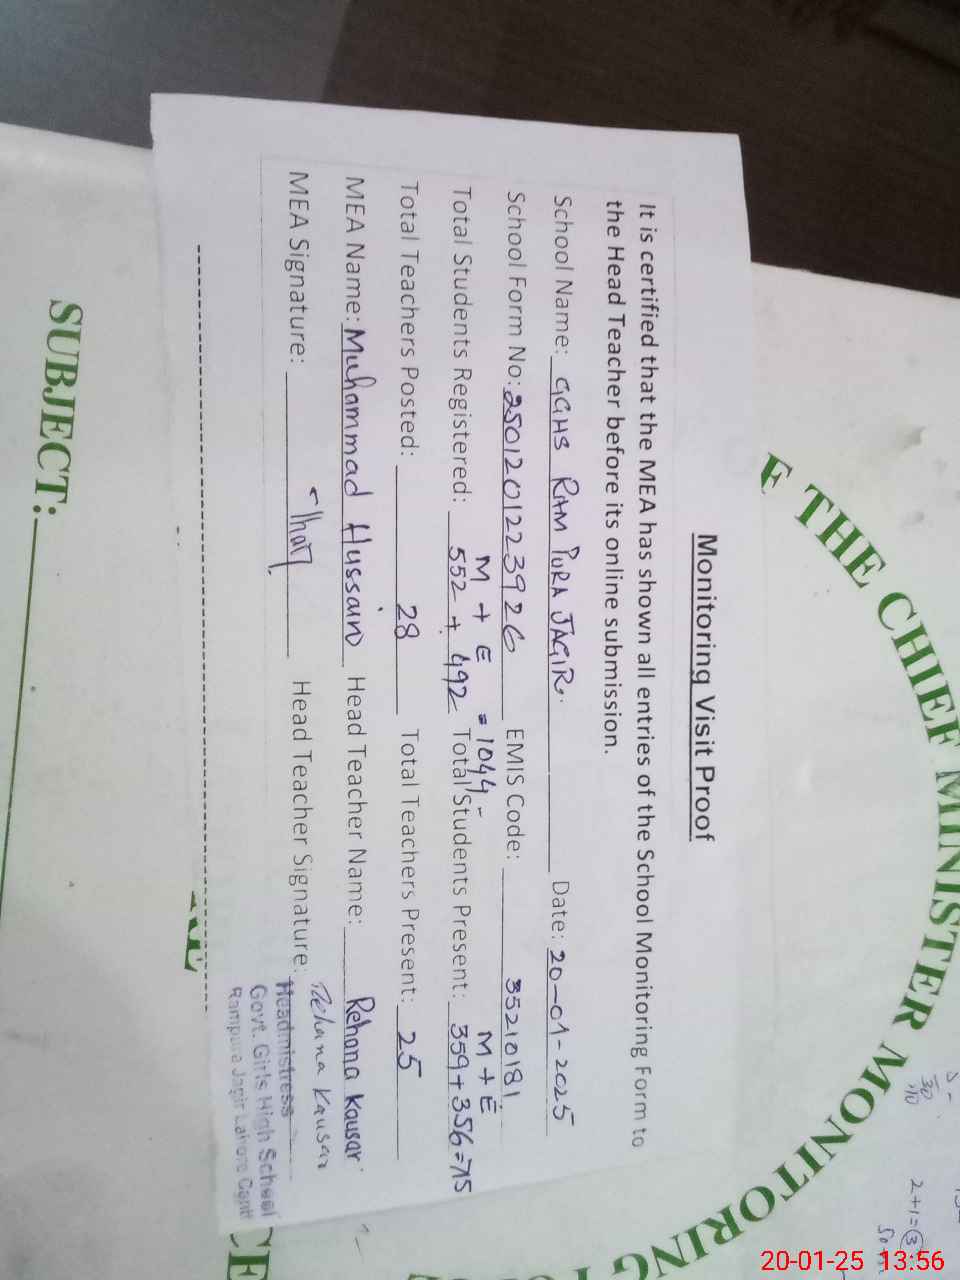 Monitoring Visit Proof
It is certified that the MEA has shown all entries of the School Monitoring Form to
the Head Teacher before its online submission.
School Name: GGHS RAM PURA JAGIR. Date: 20-01-2025
School Form No: 2501201223926 EMIS Code: 35210181
M + E = 1044 M + E
Total Students Registered: 552 + 492 Total Students Present: 359+356=715
Total Teachers Posted: 28 Total Teachers Present: 25
MEA Name: Muhammad Hussain Head Teacher Name: Rehana Kausar
MEA Signature: Head Teacher Signature: Rehana Kausar
Headmistress
Govt. Girls High School
Rampura Jagir Lahore Cantt
THE CHIEF MINISTER MONITORING
SUBJECT:
2+1=3
20-01-25 13:56